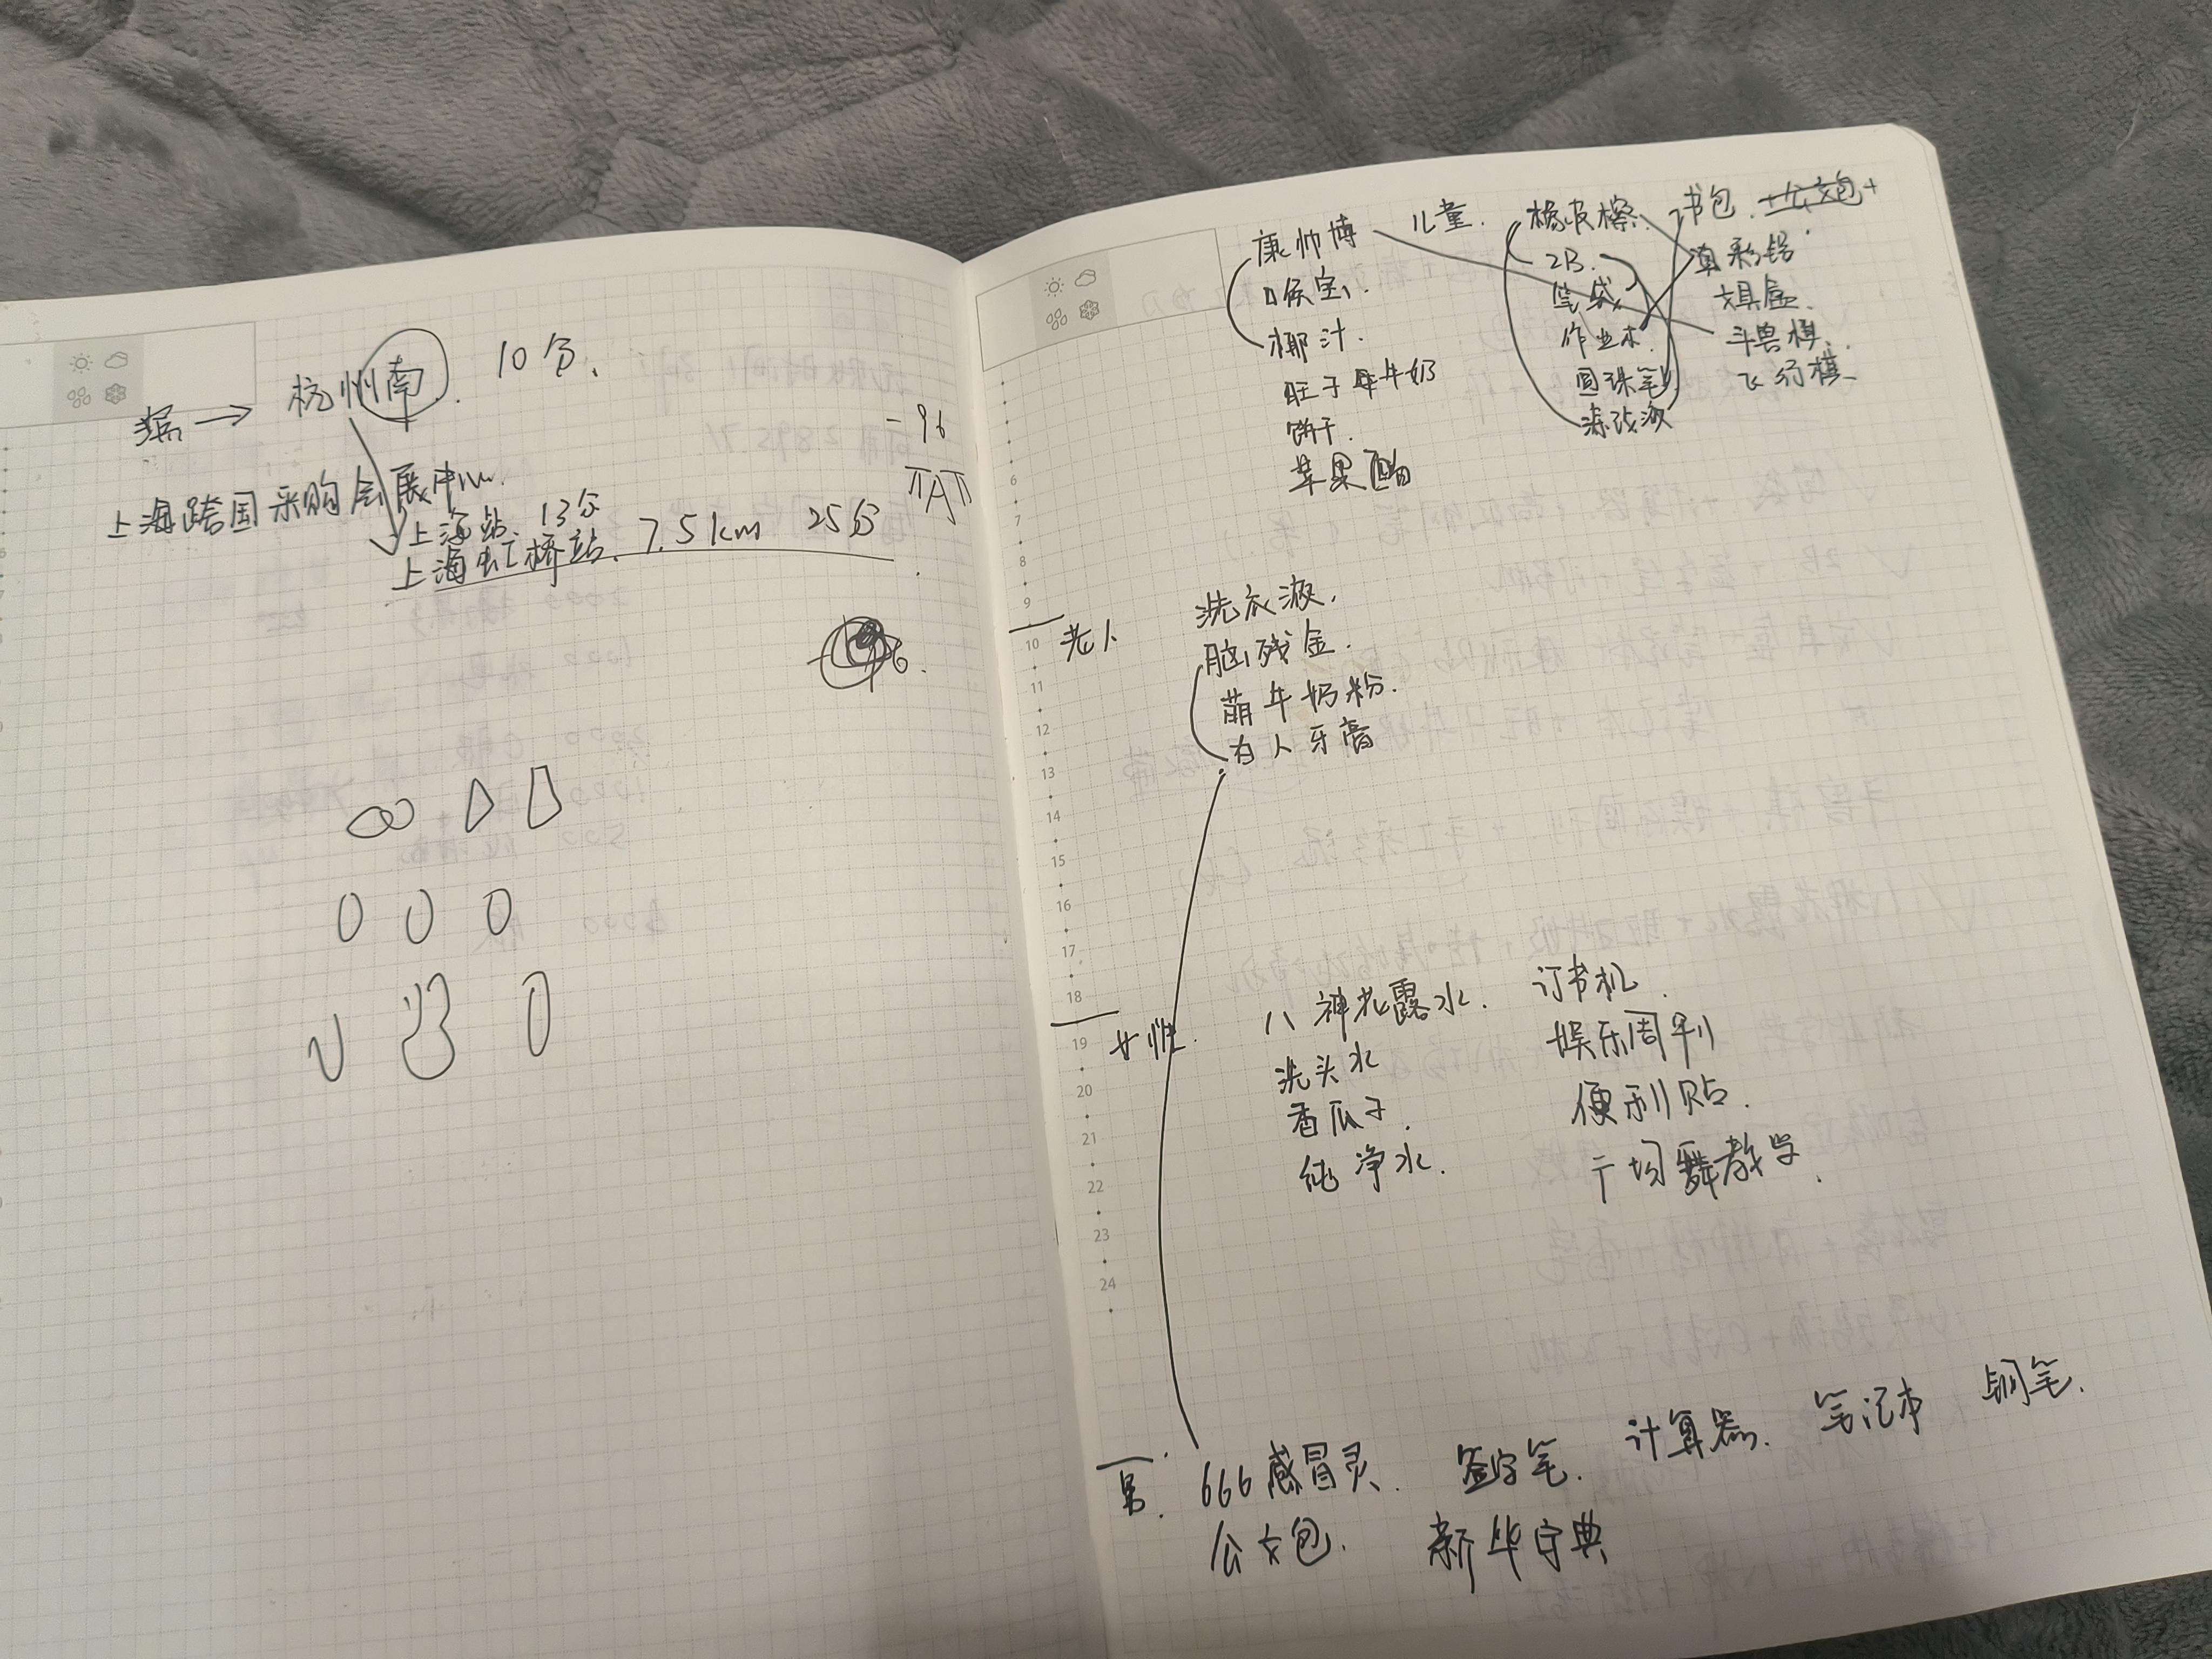 杭州南. 10分、
-96
上海跨国采购会展中心.
上海站、13分
上海虹桥站、7.5km 25分
6.
康帅博
口侯宝.
椰汁.
旺子牛奶
饼干.
苹果醋
儿童.
橡皮檫.
2B.
笔袋
作业本.
圆珠笔
涂改液
书包. +公文包+
彩铅
文具盒.
斗兽棋.
飞行棋
6
7
8
9
10
11
12
13
14
15
16
17
18
19
20
21
22
23
24
老人
洗衣液.
脑残金.
萌牛奶粉.
为人牙膏
女性.
八神花露水.
洗头水
香瓜子.
纯净水.
订书机.
娱乐周刊
便利贴.
广场舞教学.
男.
666感冒灵. 签字笔. 计算器. 笔记本 钢笔.
公文包. 新华字典